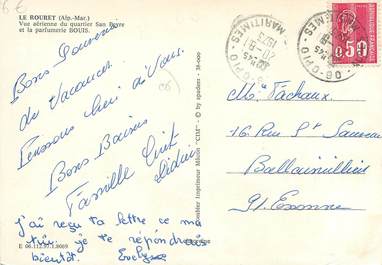 6 €
LE ROURET (Alp.-Mar.)
Vue aérienne du quartier San Peyre
et la parfumerie BOUIS.
Bons Souvenirs
de Vacances
Pensons bien à Vous.
Bons Baisers
Famille
J'ai reçu ta lettre ce ma
tin, je te répondrai
bientôt. Evelyne
E 06.112.97.1.8069
Imprimeur Mâcon "CIM" - © by
06 - OPIO
MARITIMES
1973
50
Me Fachaux
16 Rue St Sauveur
Ballainvilliers
91. Essonne